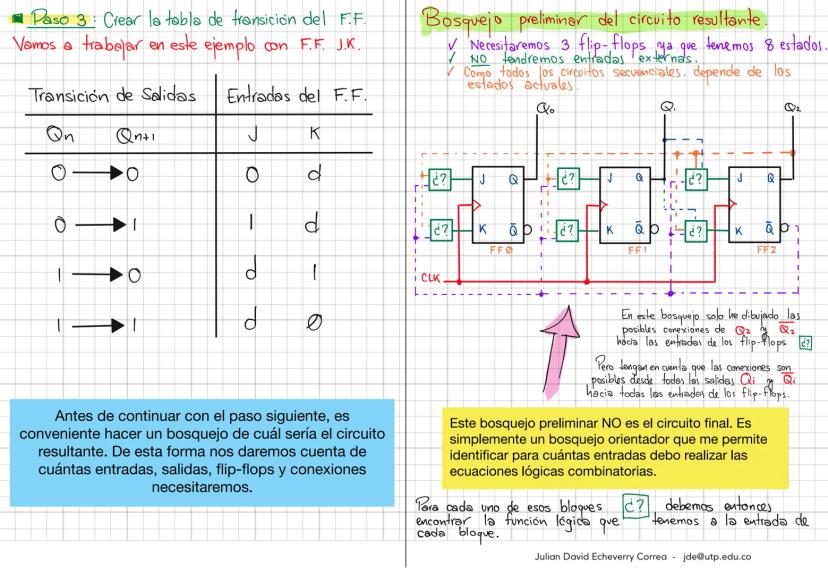 Paso 3: Crear la tabla de transición del F.F.
Vamos a trabajar en este ejemplo con F.F. J.K.
Transición de Salidas
Entradas del F.F.
Qn Qn+1 J K
0 → 0 0 d
0 → 1 1 d
1 → 0 d 1
1 → 1 d 0
Antes de continuar con el paso siguiente, es
conveniente hacer un bosquejo de cuál sería el circuito
resultante. De esta forma nos daremos cuenta de
cuántas entradas, salidas, flip-flops y conexiones
necesitaremos.
Bosquejo preliminar del circuito resultante.
✓ Necesitaremos 3 flip-flops ya que tenemos 8 estados.
✓ NO tendremos entradas externas.
✓ Como todos los circuitos secuenciales, depende de los
estados actuales.
Q0 Q1 Q2
¿? J Q ¿? J Q ¿? J Q
¿? K Q̅ ¿? K Q̅ ¿? K Q̅
FF0 FF1 FF2
CLK
En este bosquejo solo he dibujado las
posibles conexiones de Q2 y Q̅2
hacia las entradas de los flip-flops ¿?
Pero tengan en cuenta que las conexiones son
posibles desde todas las salidas Qi y Q̅i
hacia todas las entradas de los flip-flops.
Este bosquejo preliminar NO es el circuito final. Es
simplemente un bosquejo orientador que me permite
identificar para cuántas entradas debo realizar las
ecuaciones lógicas combinatorias.
Para cada uno de esos bloques ¿? debemos entonces
encontrar la función lógica que tenemos a la entrada de
cada bloque.
Julian David Echeverry Correa - jde@utp.edu.co